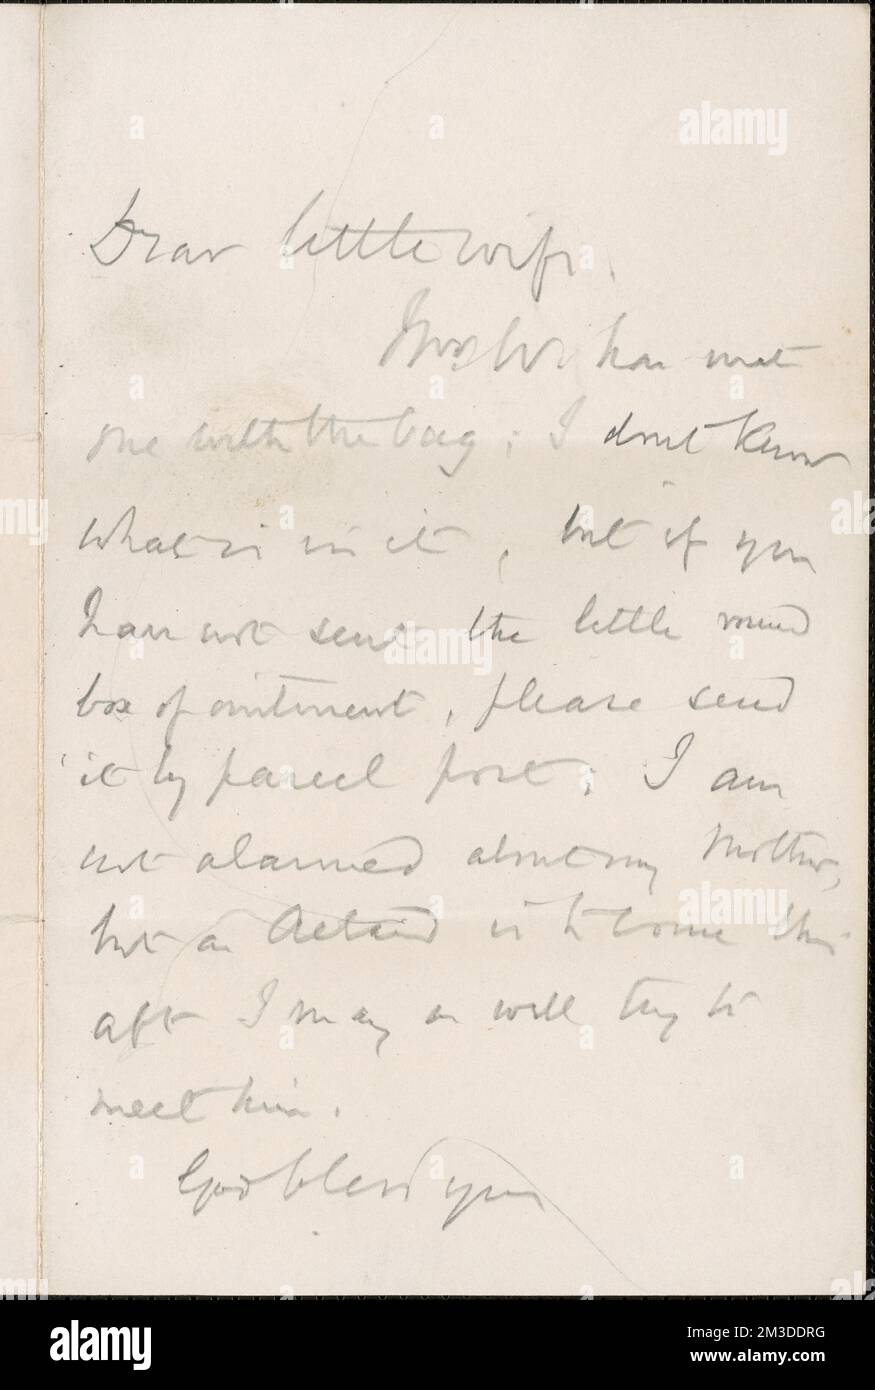 Dear little wife.
has met
me with the bag; I don't know
what is in it, but if you
have not sent the little round
box of ointment, please send
it by parcel post; I am
not alarmed about my Mother,
but is to come this
aft I may or will try to
meet him.
God bless you
alamy
Image ID: 2M3DDRG
www.alamy.com